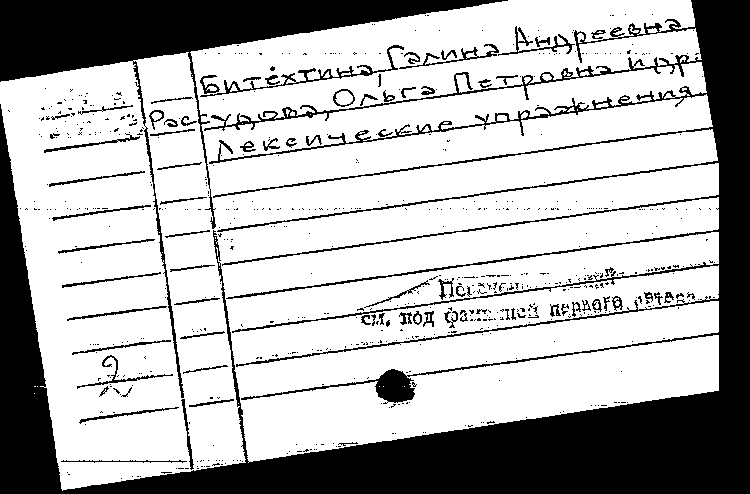 Битехтина, Галина Андреевна
Рассудова, Ольга Петровна и др.
Лексические упражнения.
см. под фамилией первого автора
2